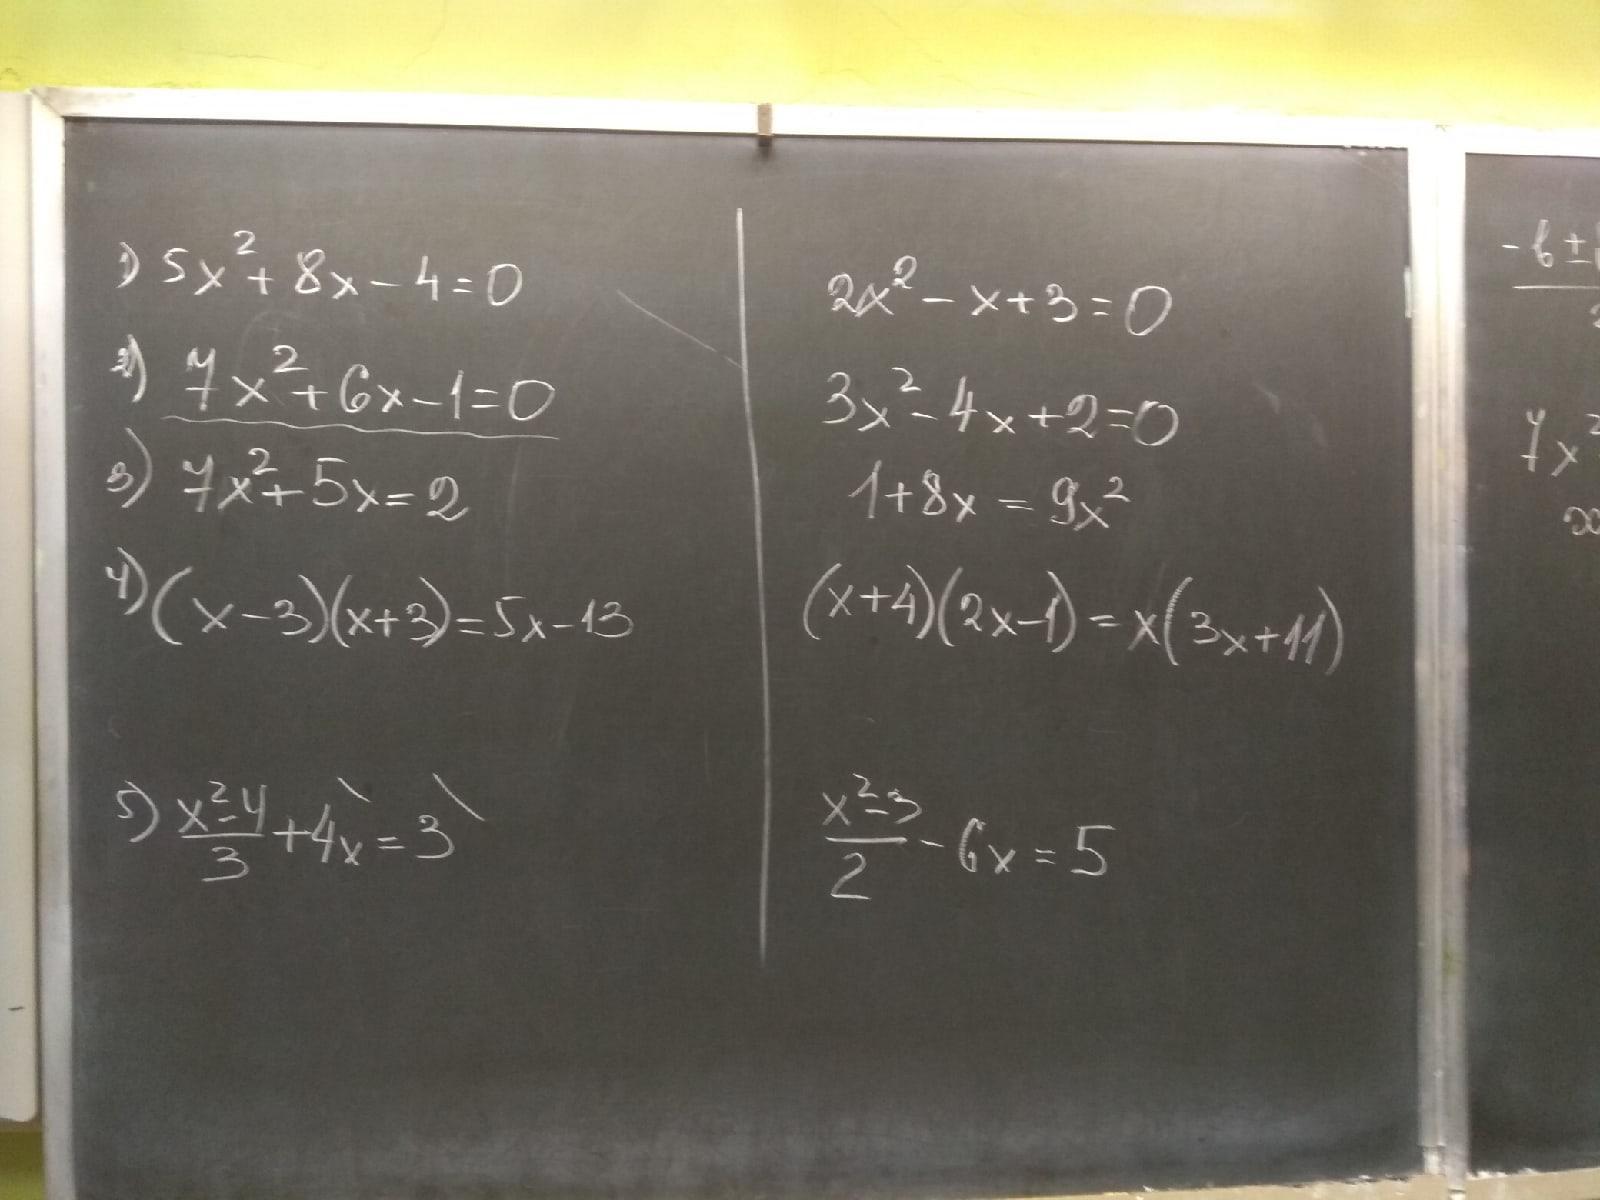 1) 5x²+8x-4=0
2) 7x²+6x-1=0
3) 7x²+5x=2
4) (x-3)(x+3)=5x-13
5) \frac{x²-4}{3}+4x=3
2x²-x+3=0
3x²-4x+2=0
1+8x=9x²
(x+4)(2x-1)=x(3x+11)
\frac{x²-3}{2}-6x=5
-b±
7x²